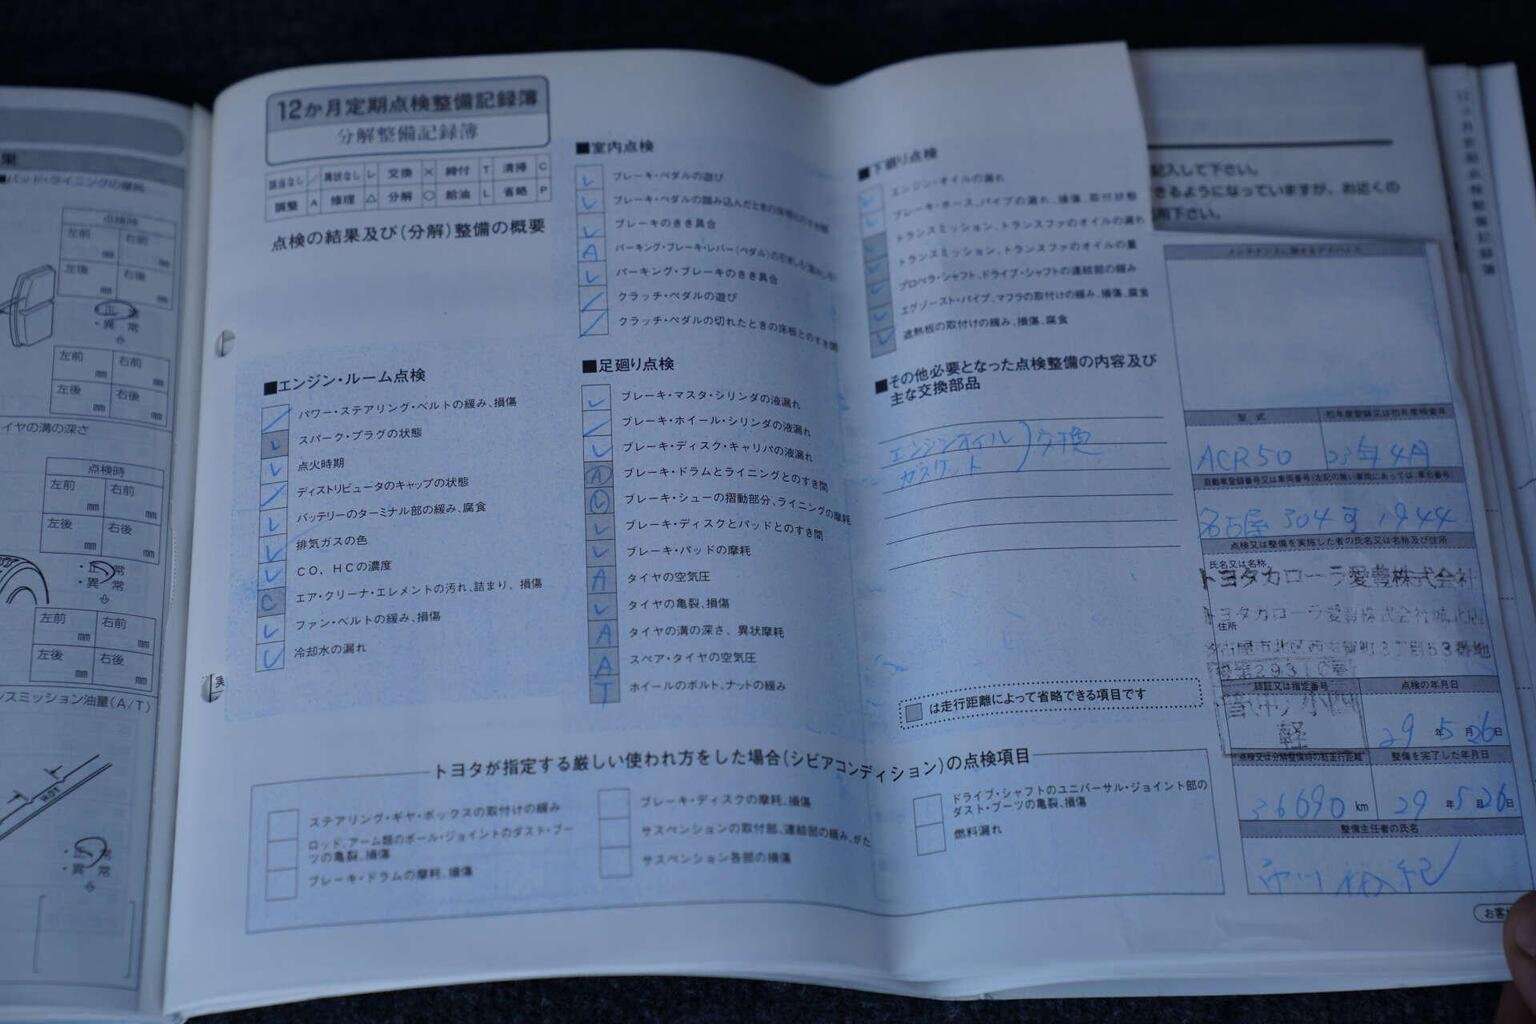 12か月定期点検整備記録簿
分解整備記録簿
該当なし / 異状なし レ 交換 × 締付 T 清掃 C
調整 A 修理 △ 分解 ○ 給油 L 省略 P
点検の結果及び(分解)整備の概要
■エンジン・ルーム点検
パワー・ステアリング・ベルトの緩み、損傷
スパーク・プラグの状態
点火時期
ディストリビュータのキャップの状態
バッテリーのターミナル部の緩み、腐食
排気ガスの色
CO、HCの濃度
C エア・クリーナ・エレメントの汚れ、詰まり、損傷
ファン・ベルトの緩み、損傷
冷却水の漏れ
■室内点検
ブレーキ・ペダルの遊び
ブレーキ・ペダルの踏み込んだときの
ブレーキのきき具合
A パーキング・ブレーキ・レバー(ペダル)の
パーキング・ブレーキのきき具合
クラッチ・ペダルの遊び
クラッチ・ペダルの切れたときの床板とのすき間
■足廻り点検
ブレーキ・マスタ・シリンダの液漏れ
ブレーキ・ホイール・シリンダの液漏れ
ブレーキ・ディスク・キャリパの液漏れ
A ブレーキ・ドラムとライニングとのすき間
ブレーキ・シューの摺動部分、ライニングの摩耗
ブレーキ・ディスクとパッドとのすき間
ブレーキ・パッドの摩耗
A タイヤの空気圧
タイヤの亀裂、損傷
A タイヤの溝の深さ、異状摩耗
A スペア・タイヤの空気圧
T ホイールのボルト、ナットの緩み
■下廻り点検
エンジン・オイルの漏れ
ブレーキ・ホース、パイプの漏れ、損傷、取付状態
トランスミッション、トランスファのオイルの漏れ
トランスミッション、トランスファのオイルの量
プロペラ・シャフト、ドライブ・シャフトの連結部の緩み
エグゾースト・パイプ、マフラの取付けの緩み、損傷、腐食
遮熱板の取付けの緩み、損傷、腐食
■その他必要となった点検整備の内容及び
主な交換部品
エンジンオイル
ガスケット
交換
は走行距離によって省略できる項目です
トヨタが指定する厳しい使われ方をした場合(シビアコンディション)の点検項目
ステアリング・ギヤ・ボックスの取付けの緩み
ロッド、アーム類のボール・ジョイントのダスト・ブー
ツの亀裂、損傷
ブレーキ・ドラムの摩耗、損傷
ブレーキ・ディスクの摩耗、損傷
サスペンションの取付部、連結部の緩み、がた
サスペンション各部の損傷
ドライブ・シャフトのユニバーサル・ジョイント部の
ダスト・ブーツの亀裂、損傷
燃料漏れ
記入して下さい。
きるようになっていますが、お近くの
用下さい。
型式
初年度登録又は初年度検査年
ACR50 23年4月
名古屋 304 す 1944
点検又は整備を実施した者の氏名又は名称及び住所
氏名又は名称
トヨタカローラ愛豊株式会社
住所
認証又は指定番号
点検の年月日
軽
29年5月26日
整備を完了した年月日
36090 km
29年5月26日
整備主任者の氏名
点検時
左前 右前
mm mm
左後 右後
mm mm
正
・異 常
左前 右前
mm mm
左後 右後
mm mm
イヤの溝の深さ
点検時
左前 右前
mm mm
左後 右後
mm mm
・正 常
・異 常
左前 右前
mm mm
左後 右後
mm mm
ンスミッション油量(A/T)
HOT
・正 常
・異 常